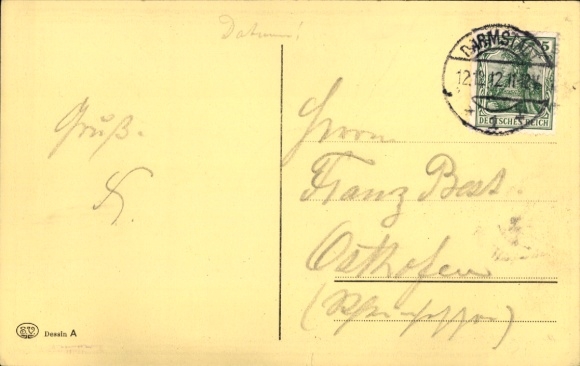 Datum!
DARMSTADT
5
12.12.12.11-12V.
DEUTSCHES REICH
Gruß.
Herrn
Franz Best
Osthofen
(Rheinhessen)
Dessin A